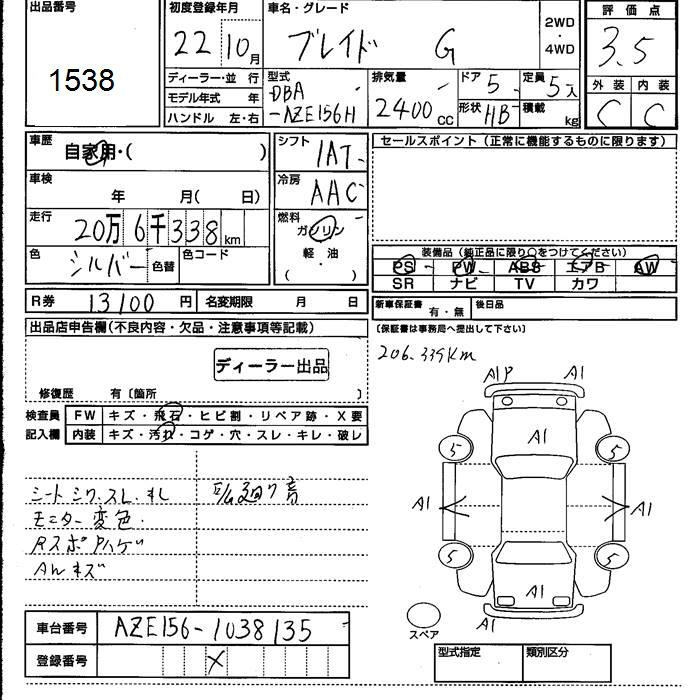 出品番号
1538
初度登録年月
22 10月
車名・グレード
ブレイド G
2WD
・
4WD
評価点
3.5
外装 内装
C C
ディーラー・並 行
モデル年式 年
ハンドル 左・右
型式
DBA
-AZE156H
排気量
2400cc
ドア 5
形状 HB
定員 5人
積載 kg
車歴
自家用・( )
車検
年 月( 日)
走行
20万6千338km
色
シルバー 色替
色コード
シフト
1AT
冷房
AAC
燃料
ガソリン
軽・油
( ・ )
セールスポイント(正常に機能するものに限ります)
装備品(純正品に限り○をつけてください)
PS PW ABS エアB AW
SR ナビ TV カワ
R券 13100円 名変期限 月 日
新車保証書 有・無 後日品
(保証書は事務局へ提出して下さい)
出品店申告欄(不良内容・欠品・注意事項等記載)
ディーラー出品
修復歴 有〔箇所 〕
検査員
記入欄
FW キズ・飛石・ヒビ割・リペア跡・X要
内装 キズ・汚れ・コゲ・穴・スレ・キレ・破レ
206.339km
A1P A1
A1
5 5
A1 A1
5 5
A1
A1
スペア
シート シワ.スレ.キレ
モニター変色.
Rスポ Pハゲ
AWキズ
車台番号 AZE156-1038135
登録番号 X
型式指定 類別区分